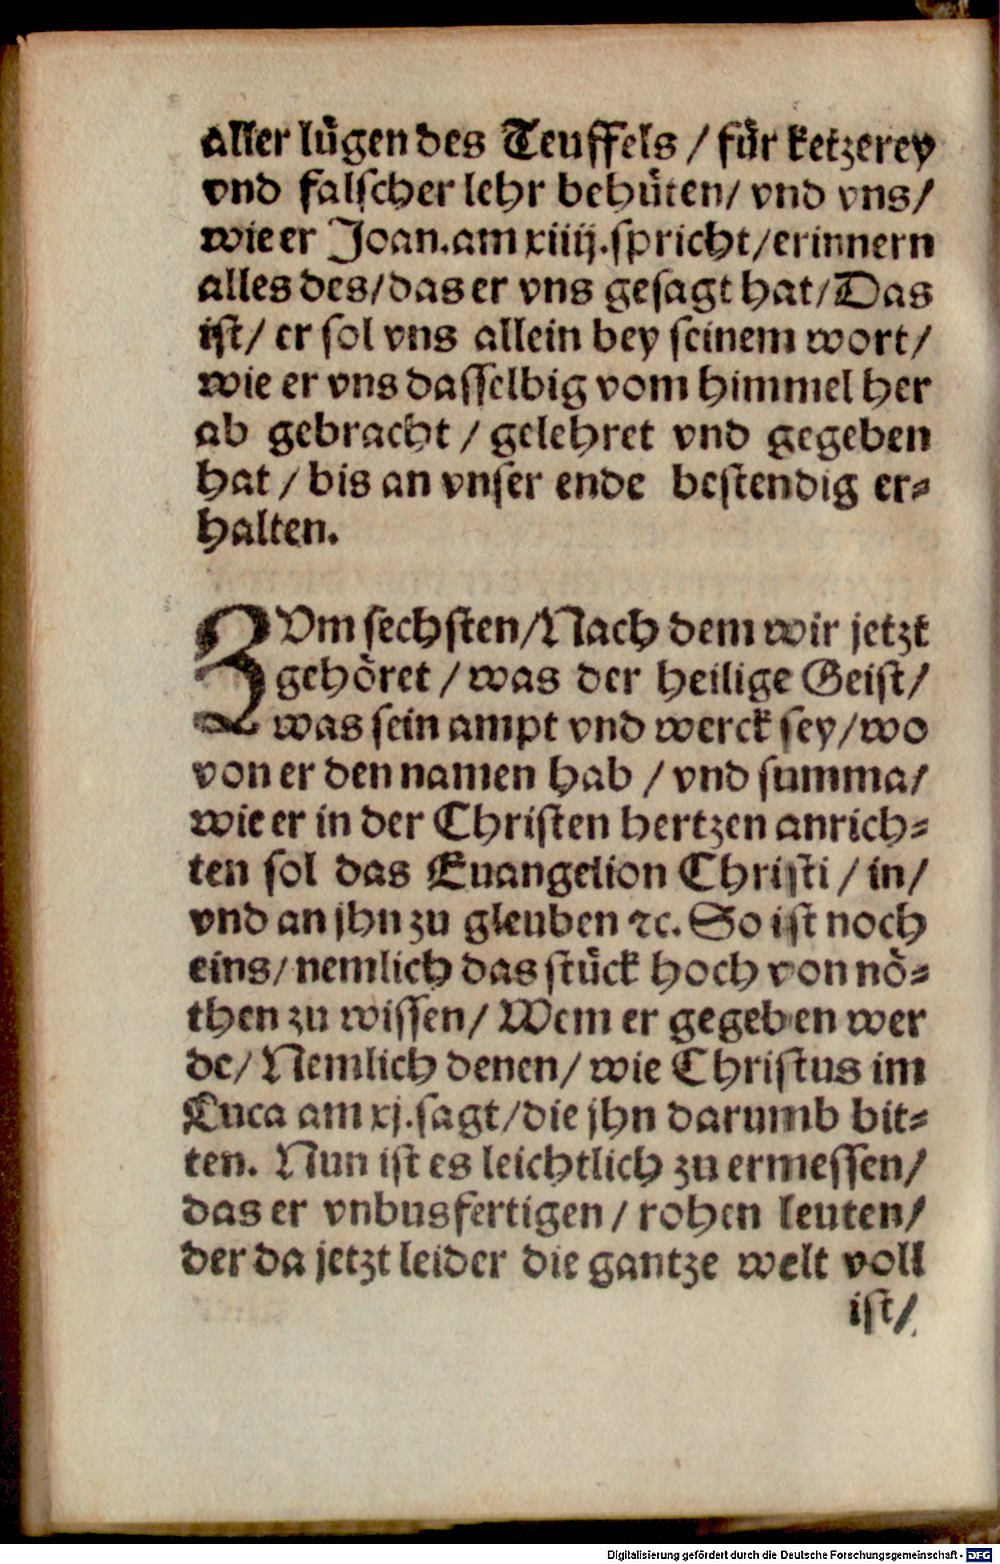 aller lügen des Teuffels / für ketzerey
vnd falscher lehr behüten/ vnd vns/
wie er Joan. am xiiij. spricht/erinnern
alles des/das er vns gesagt hat/Das
ist/ er sol vns allein bey seinem wort/
wie er vns dasselbig vom himmel her
ab gebracht / gelehret vnd gegeben
hat / bis an vnser ende bestendig er-
halten.
ZVm sechsten/Nach dem wir jetzt
gehöret / was der heilige Geist/
was sein ampt vnd werck sey/wo
von er den namen hab / vnd summa/
wie er in der Christen hertzen anrich-
ten sol das Euangelion Christi / in/
vnd an jhn zu gleuben ꝛc. So ist noch
eins/ nemlich das stück hoch von nö-
then zu wissen/ Wem er gegeben wer
de/ Nemlich denen/ wie Christus im
Luca am xj. sagt/die jhn darumb bit-
ten. Nun ist es leichtlich zu ermessen/
das er vnbusfertigen / rohen leuten/
der da jetzt leider die gantze welt voll
ist/
Digitalisierung gefördert durch die Deutsche Forschungsgemeinschaft - DFG